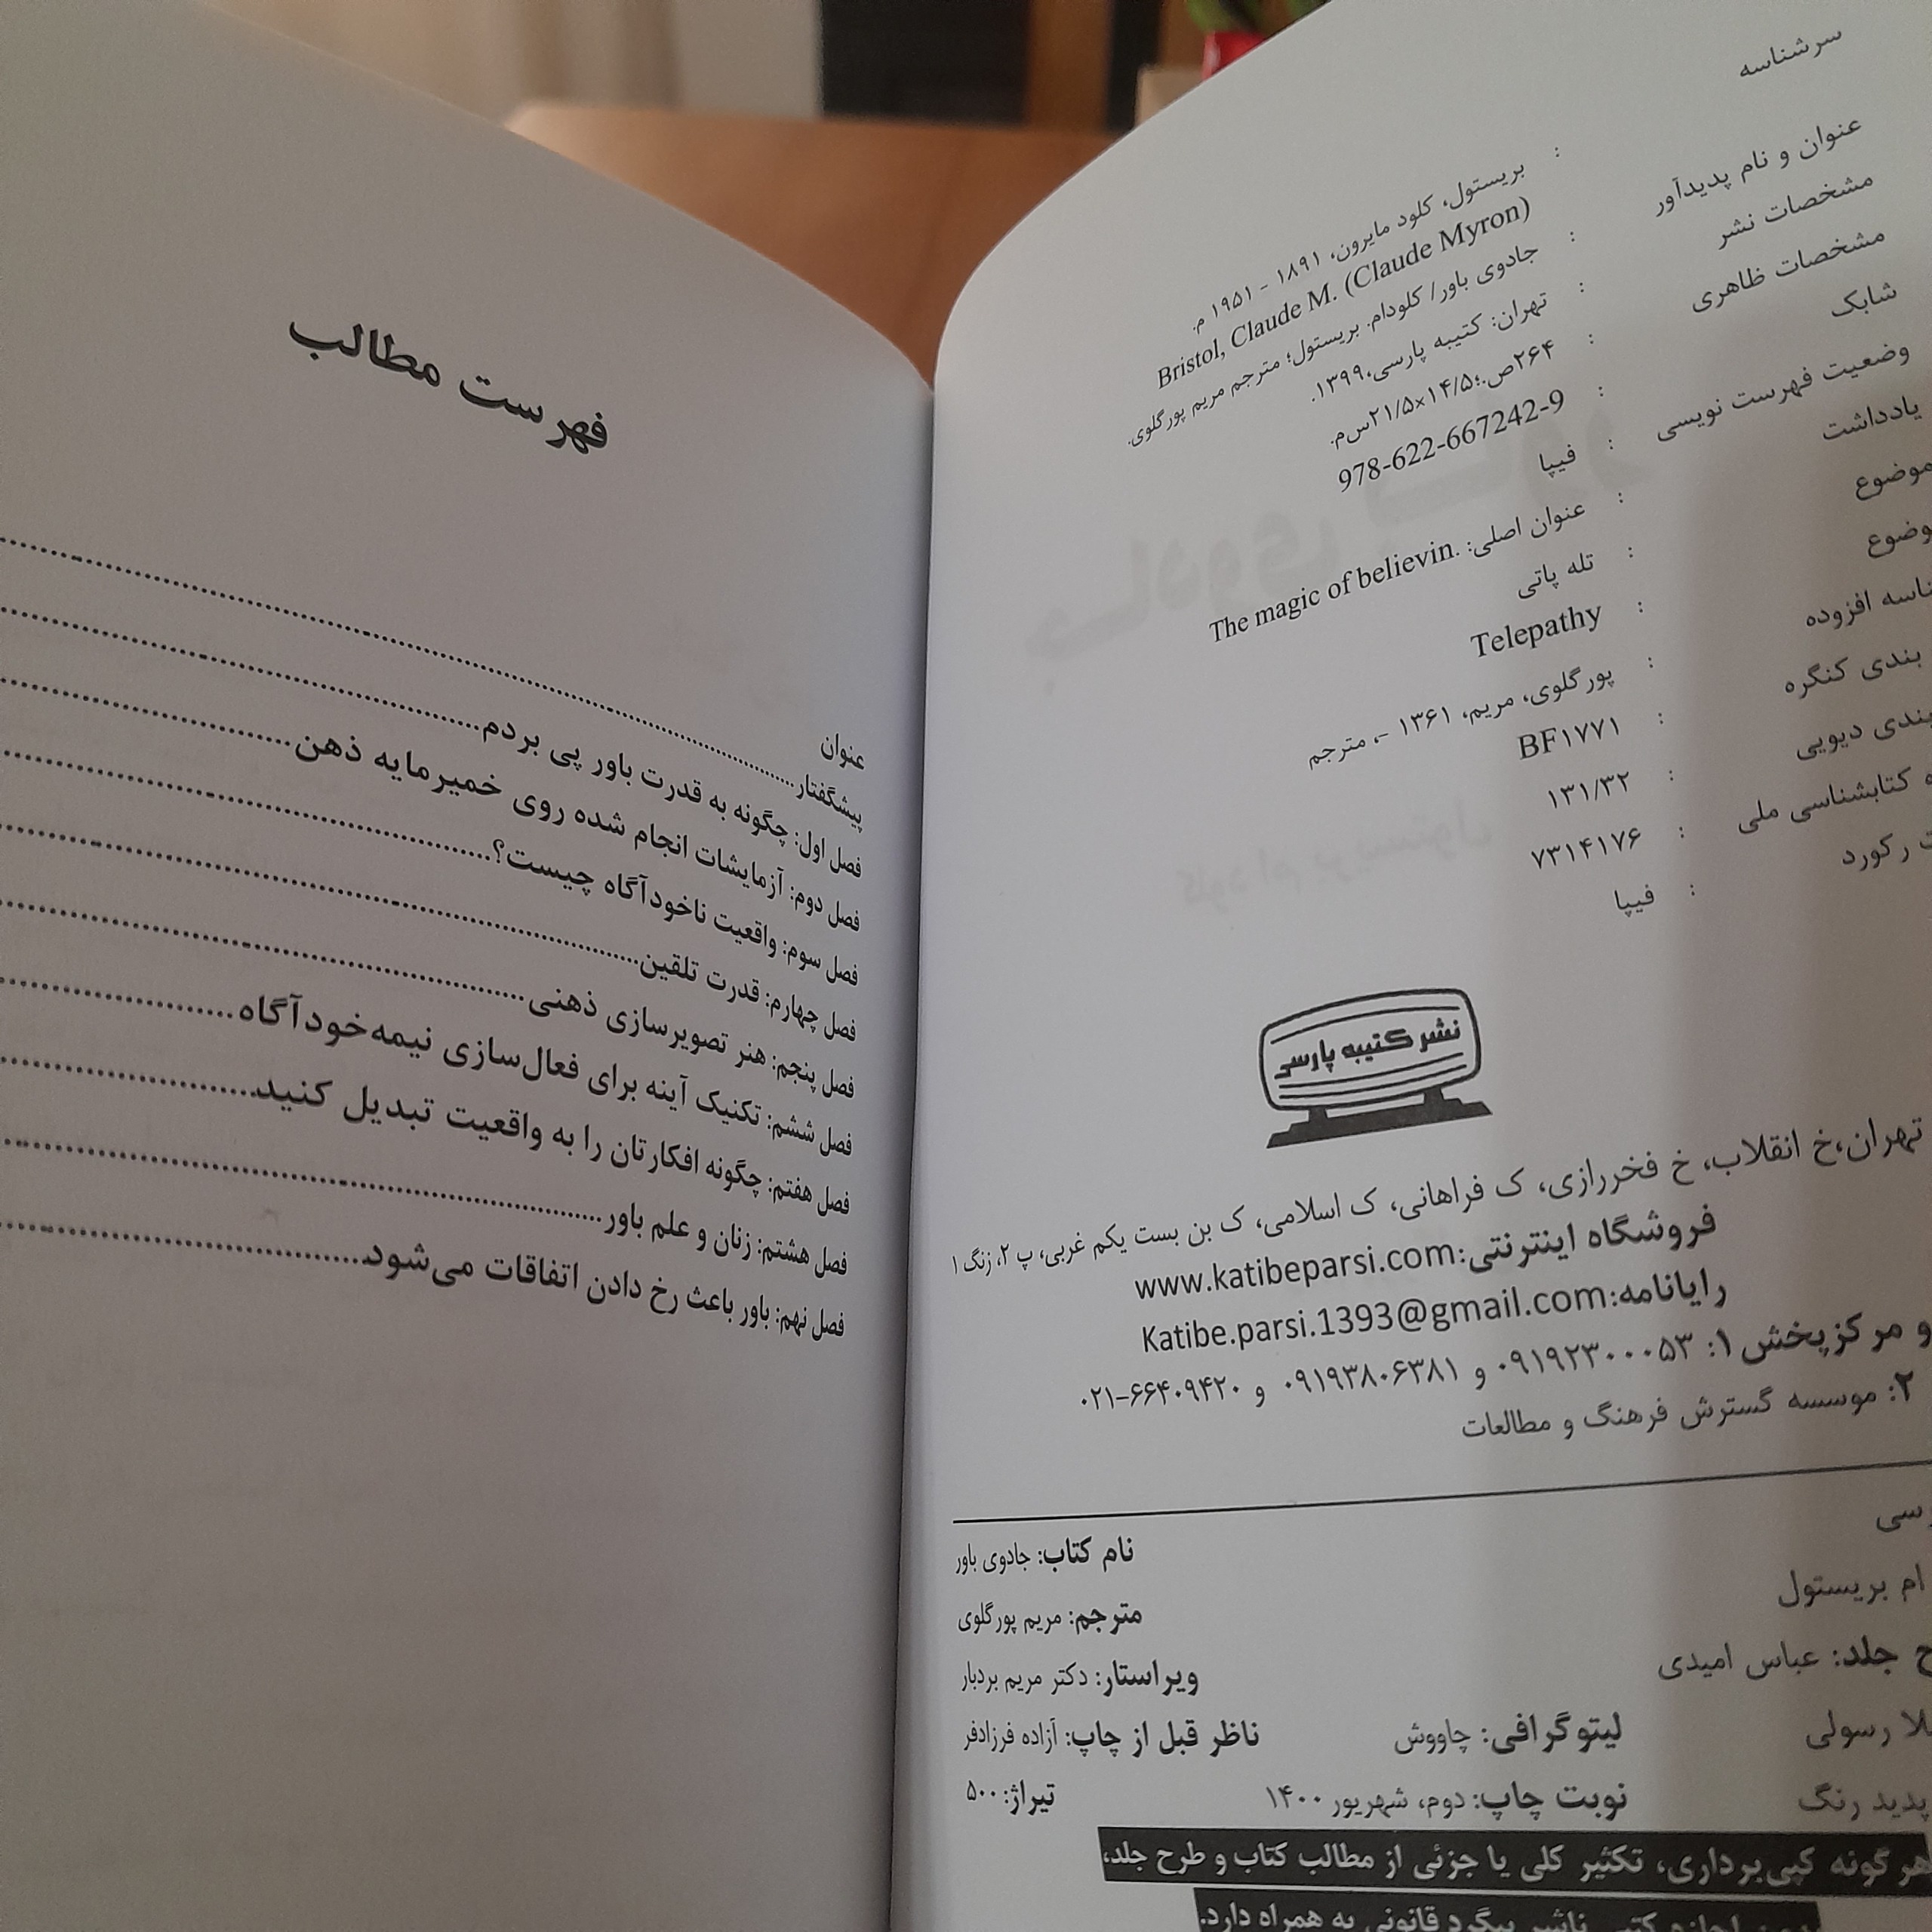 سرشناسه : بریستول، کلود مایرون، ۱۸۹۱ - ۱۹۵۱ م.
Bristol, Claude M. (Claude Myron)
عنوان و نام پدیدآور : جادوی باور/ کلودام. بریستول؛ مترجم مریم پورگلوی.
مشخصات نشر : تهران: کتیبه پارسی،۱۳۹۹.
مشخصات ظاهری : ۲۶۴ص.؛۱۴/۵×۲۱/۵س‌م.
شابک : 978-622-667242-9
وضعیت فهرست نویسی : فیپا
یادداشت : عنوان اصلی: The magic of believin.
موضوع : تله پاتی
موضوع : Telepathy
افزوده : پورگلوی، مریم، ۱۳۶۱ -، مترجم
بندی کنگره : BF۱۷۷۱
بندی دیویی : ۱۳۱/۳۲
کتابشناسی ملی : ۷۳۱۴۱۷۶
رکورد : فیپا
نشر کتیبه پارسی
تهران،خ انقلاب، خ فخررازی، ک فراهانی، ک اسلامی، ک بن بست یکم غربی، پ ۲، زنگ ۱
فروشگاه اینترنتی:www.katibeparsi.com
رایانامه:Katibe.parsi.1393@gmail.com
و مرکزپخش ۱: ۰۹۱۹۲۳۰۰۰۵۳ و ۰۹۱۹۳۸۰۶۳۸۱ و ۶۶۴۰۹۴۲۰-۰۲۱
۲: موسسه گسترش فرهنگ و مطالعات
نام کتاب: جادوی باور
ام بریستول مترجم: مریم پورگلوی
جلد: عباس امیدی ویراستار: دکتر مریم بردبار
رسولی لیتوگرافی: چاووش ناظر قبل از چاپ: آزاده فرزادفر
پدید رنگ نوبت چاپ: دوم، شهریور ۱۴۰۰ تیراژ: ۵۰۰
هرگونه کپی‌برداری، تکثیر کلی یا جزئی از مطالب کتاب و طرح جلد،
ناشر پیگرد قانونی به همراه دارد.
فهرست مطالب
عنوان
پیشگفتار
فصل اول: چگونه به قدرت باور پی بردم
فصل دوم: آزمایشات انجام شده روی خمیرمایه ذهن
فصل سوم: واقعیت ناخودآگاه چیست؟
فصل چهارم: قدرت تلقین
فصل پنجم: هنر تصویرسازی ذهنی
فصل ششم: تکنیک آینه برای فعال‌سازی نیمه‌خودآگاه
فصل هفتم: چگونه افکارتان را به واقعیت تبدیل کنید
فصل هشتم: زنان و علم باور
فصل نهم: باور باعث رخ دادن اتفاقات می‌شود